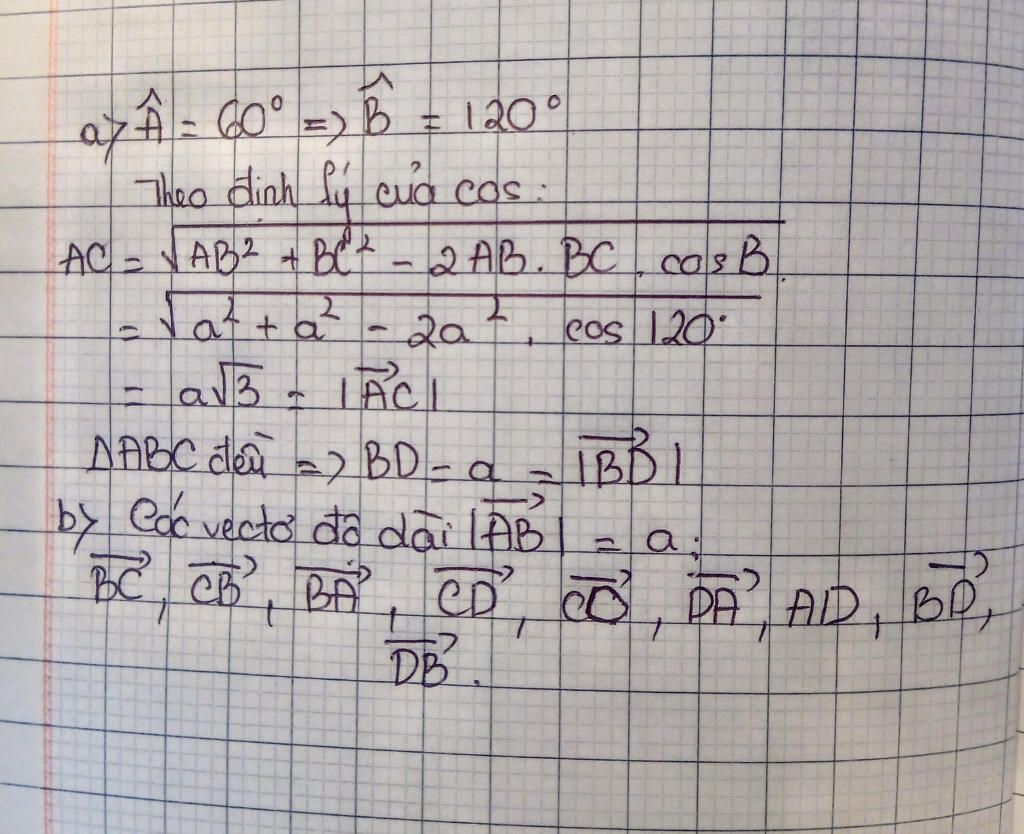 a) Â = 60° => B̂ = 120°
Theo định lý của cos:
AC = √(AB² + BC² - 2AB. BC. cos B)
= √(a² + a² - 2a². cos 120°)
= a√3 = |A⃗C⃗|
ΔABC đều => BD = a = |B⃗D⃗|
b) Các vectơ độ dài |A⃗B⃗| = a:
B⃗C⃗, C⃗B⃗, B⃗A⃗, C⃗D⃗, C⃗D⃗, D⃗A⃗, AD, B⃗D⃗,
D⃗B⃗.